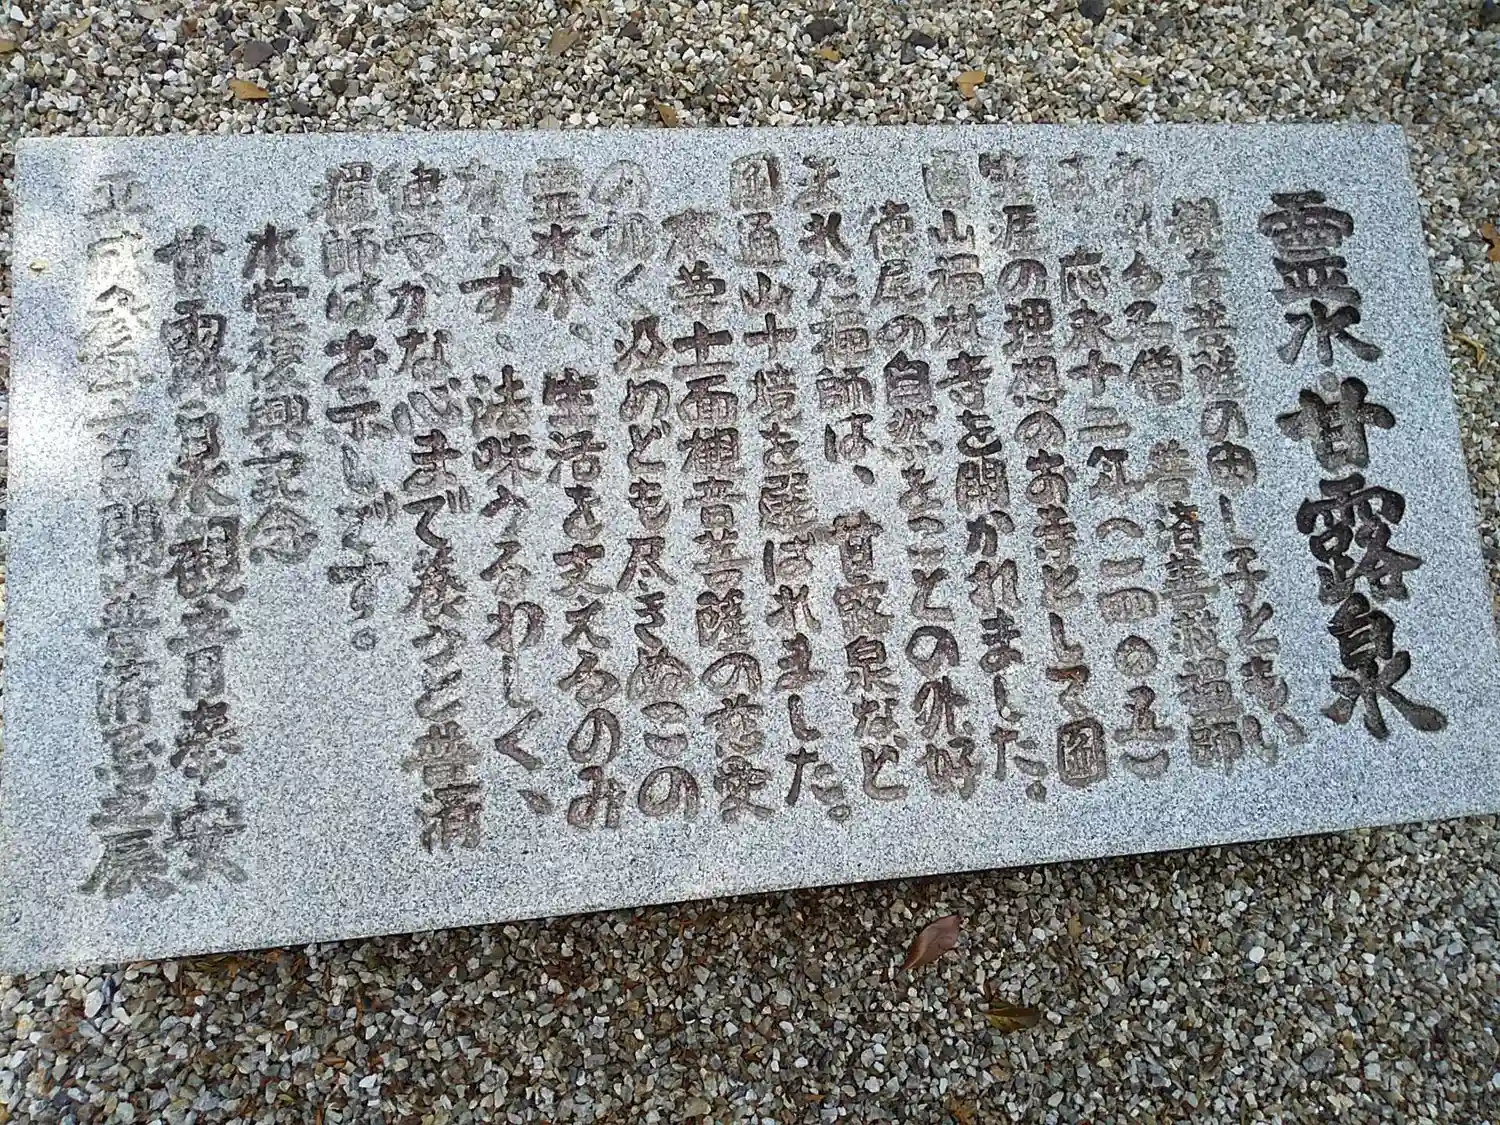 霊水 甘露泉
観音菩薩の申し子ともい
われる名僧 普済善救禅師
は、応永十二年(一四〇五)
生涯の理想のお寺として圓
通山福林寺を開かれました。
徳尾の自然をことの外好
まれた禅師は、甘露泉など
圓通山十境を選ばれました。
本尊十一面観音菩薩の慈愛
の如く汲めども尽きぬこの
霊水が、生活を支えるのみ
ならず、法味うるわしく、
健やかな心まで養うと普済
禅師はお示しです。
本堂復興記念
甘露泉観音奉安
平成